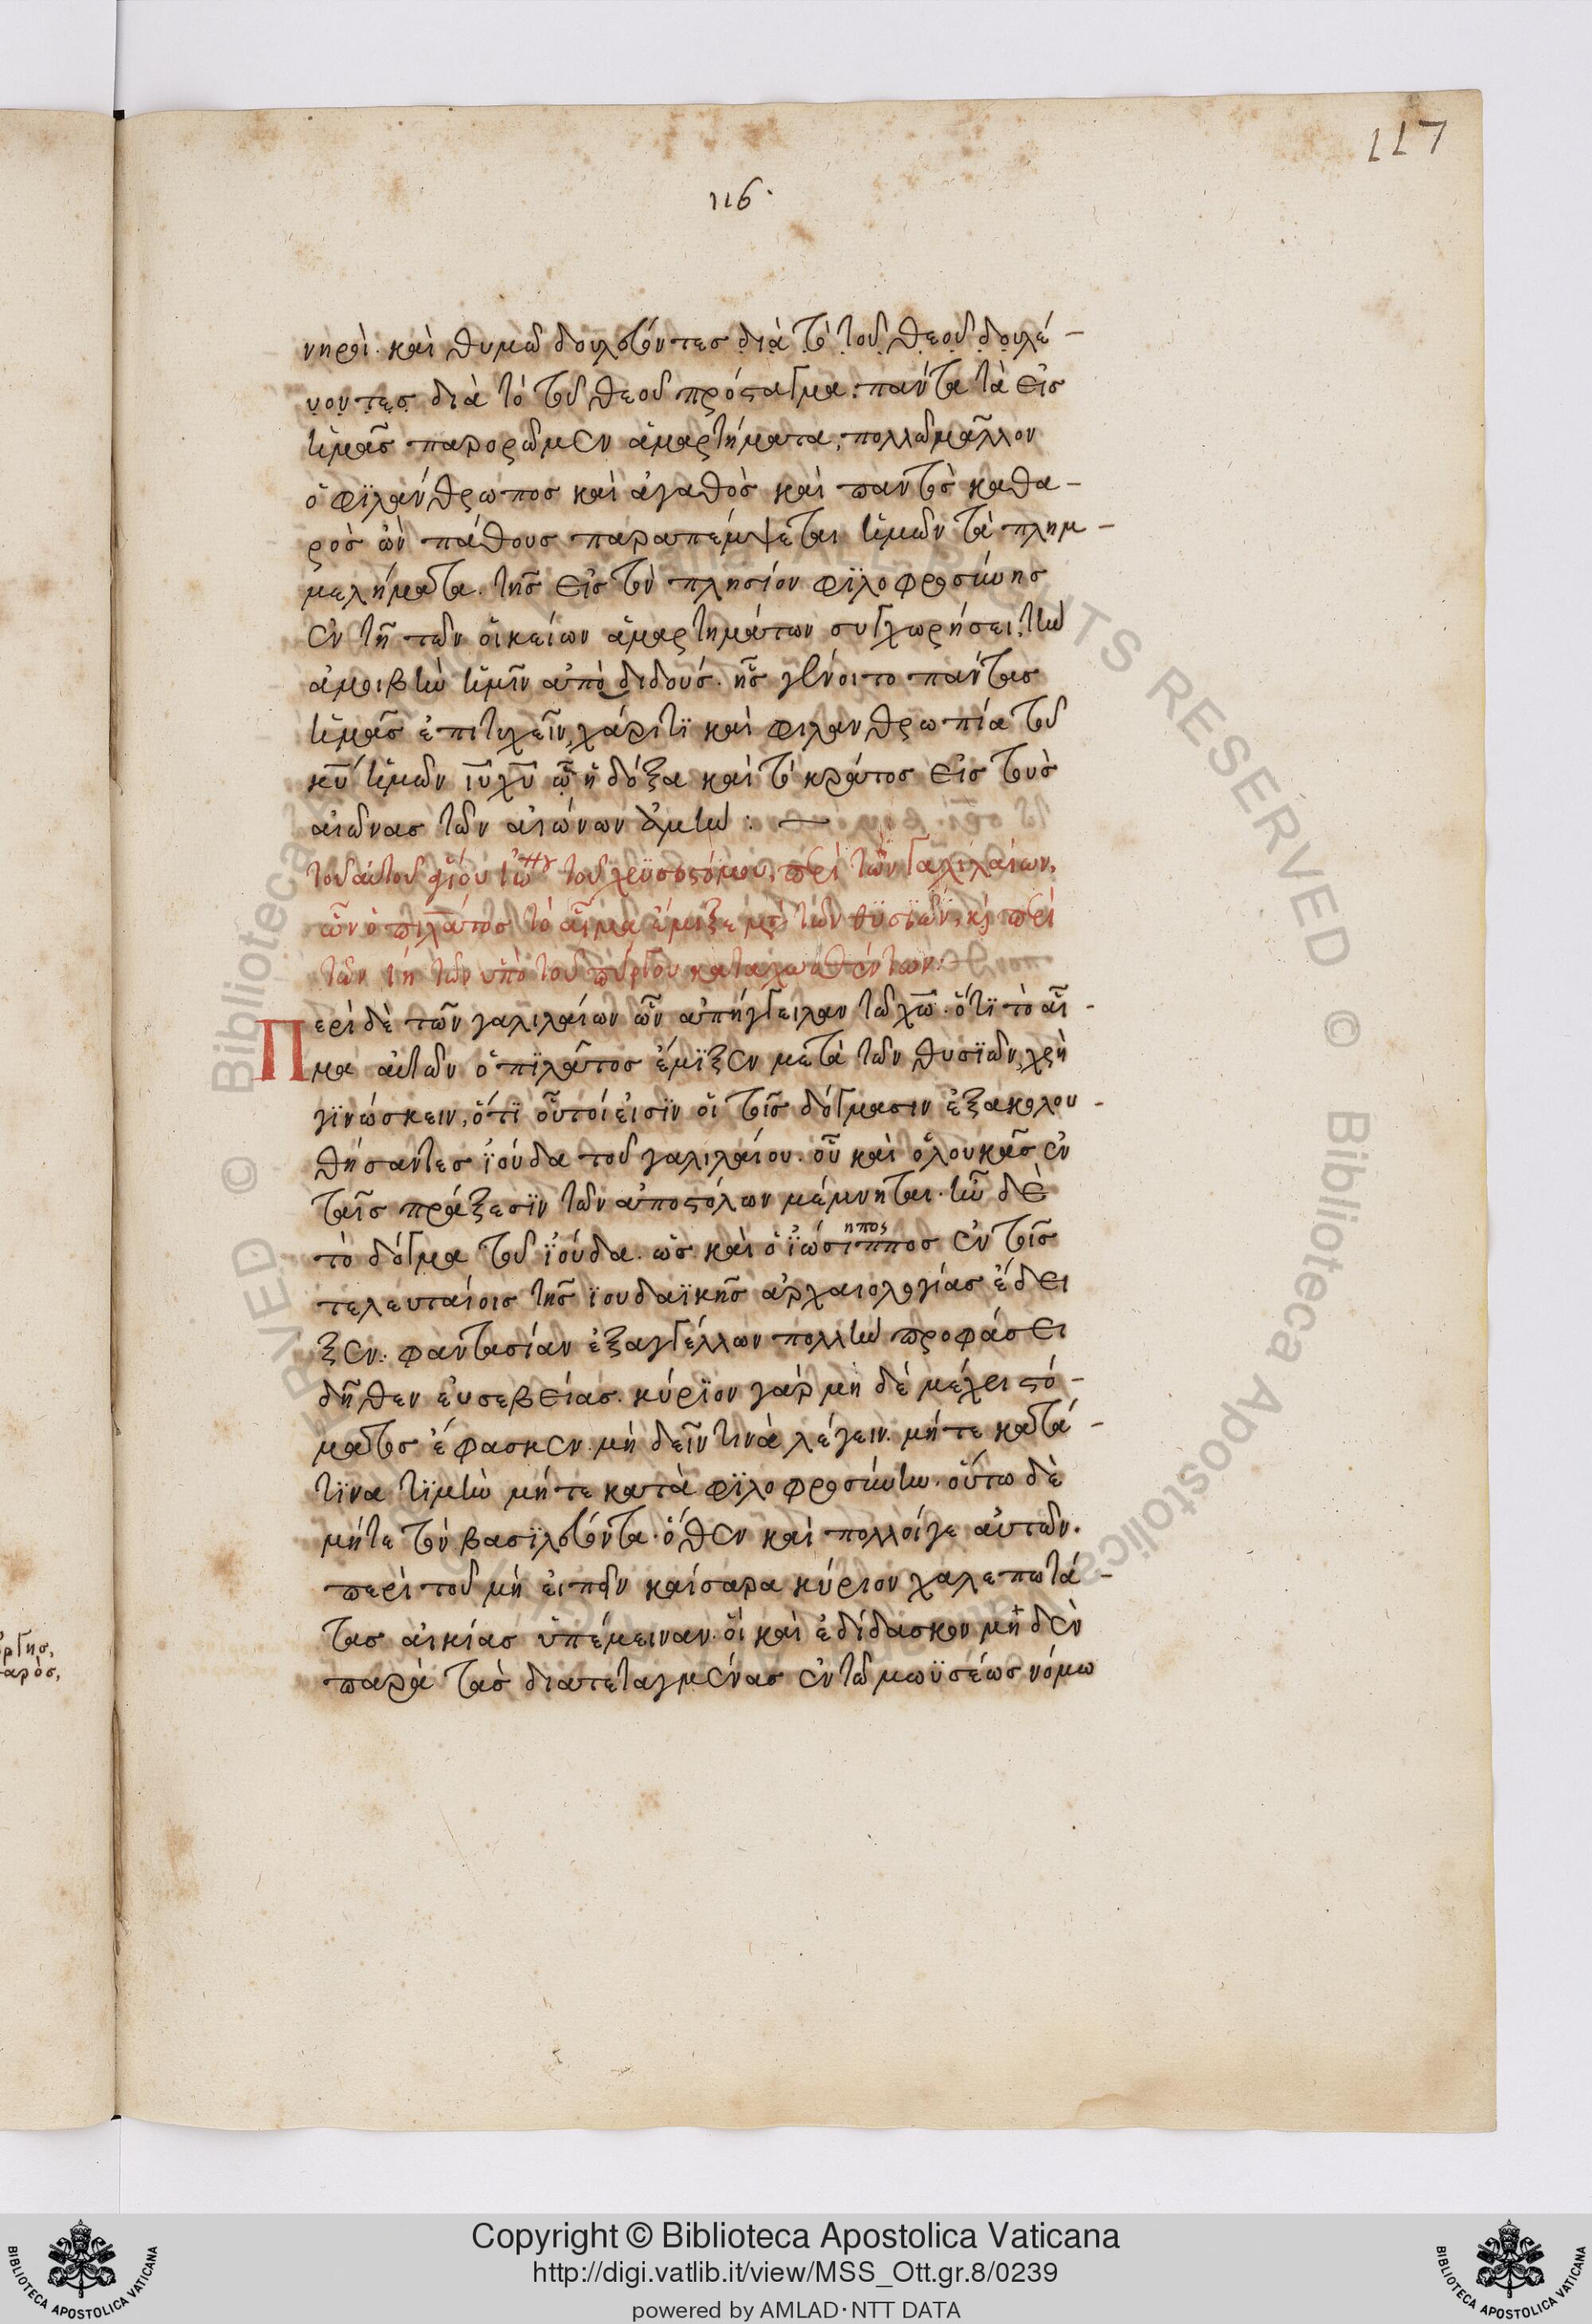 117
116.
νηροὶ. καὶ θυμῶ δουλεύοντεσ διὰ τὸ τοῦ θεοῦ δουλέ-
υοντεσ διὰ τὸ τοῦ θεοῦ πρόσταγμα. πάντα τὰ εἰσ
ἡμᾶσ παρορῶμεν ἁμαρτήματα, πολλῶ μᾶλλον
ὁ φϊλάνθρωποσ καὶ ἀγαθὸσ καὶ παντὸσ καθα-
ρὸσ ὢν πάθουσ παραπέμψεται ἡμῶν τὰ πλημ-
μελήματα. τῆσ εἰσ τὸν πλησίον φϊλοφροσύνησ
ἐν τῆ τῶν οἰκείων ἁμαρτημάτων συγχωρήσει, τὴν
ἀμοιβὴν ἡμῖν ἀπὸ διδούσ. ἧσ γένοιτο πάντασ
ἡμᾶσ ἐπιτυχεῖν, χάριτϊ καὶ φιλανθρωπία τοῦ
κυ ἡμῶν ιυ χυ ᾧ ἡ δόξα καὶ τὸ κράτοσ εἰσ τοὺσ
αἰῶνασ τῶν αἰώνων ἀμὴν : —
τοῦ αὐτοῦ ἁγίου ἰω τοῦ χρϋσοστόμου, περὶ τῶν γαλιλαίων,
ὧν ὁ πιλάτοσ τὸ αἷμα ἔμιξε μετὰ τῶν θϋσϊῶν, κ περὶ
τῶν ιη τῶν ὑπὸ τοῦ πύργου καταχωσθέντων:
Περὶ δὲ τῶν γαλιλαίων ὧν ἀπήγγειλαν τῶ χω. ὅτϊ τὸ αἷ-
μα αὐτῶν ὁ πϊλάτοσ ἔμϊξεν μετὰ τῶν θυσϊῶν, χρὴ
γϊνώσκειν, ὅτϊ οὗτοί εἰσϊν οἱ τοῖσ δόγμασιν ἐξακολου-
θήσαντεσ ϊούδα τοῦ γαλιλαίου. οὗ καὶ ὁ λουκᾶσ ἐν
ταῖσ πράξεσϊν τῶν ἀποστόλων μέμνηται. ἦν δὲ
τὸ δόγμα τοῦ ϊούδα. ὡσ καὶ ὁ ϊώσιππος ἐν τοῖσ
ηπος
τελευταίοισ τῆσ ϊουδαϊκῆσ ἀρχαιολογίασ ἔδει
ξεν. φαντασίαν ἐξαγγέλλων πολλὴν προφάσει
δῆθεν εὐσεβείασ. κύρϊον γὰρ μὴ δὲ μέχρι στό-
ματοσ ἔφασκεν. μὴ δεῖν τινὰ λέγειν. μήτε κατά
τϊνα τϊμὴν μήτε κατὰ φϊλοφροσύνην. οὕτω δὲ
μήτε τὸν βασϊλεύοντα. ὅθεν καὶ πολλοί γε αὐτῶν.
περὶ τοῦ μὴ εἰπεῖν καίσαρα κύριον χαλεπωτά-
τασ αἰκίασ ὑπέμειναν. οἳ καὶ ἐδίδασκον μὴ δὲν
παρὰ τὰσ διατεταγμένασ ἐν τῶ μωϋσέωσ νόμω
Copyright © Biblioteca Apostolica Vaticana
http://digi.vatlib.it/view/MSS_Ott.gr.8/0239
powered by AMLAD·NTT DATA